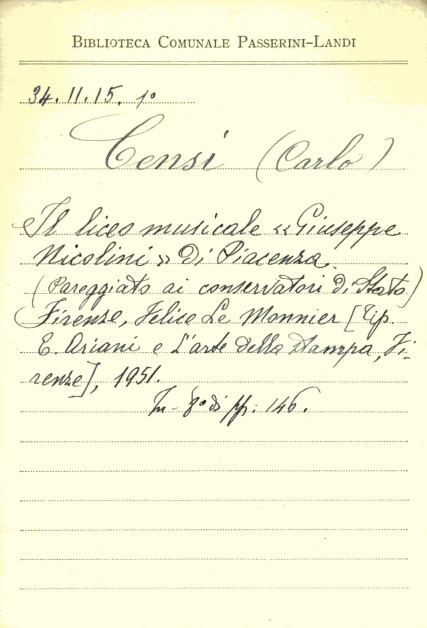 BIBLIOTECA COMUNALE PASSERINI-LANDI
34.11.15. 1°
Censi (Carlo)
Il liceo musicale «Giuseppe
Nicolini» di Piacenza.
(Pareggiato ai conservatori di Stato)
Firenze, Felice Le Monnier [Tip.
E. Ariani e L'arte della Stampa, Fi-
renze], 1951.
In-8° di pp. 146.